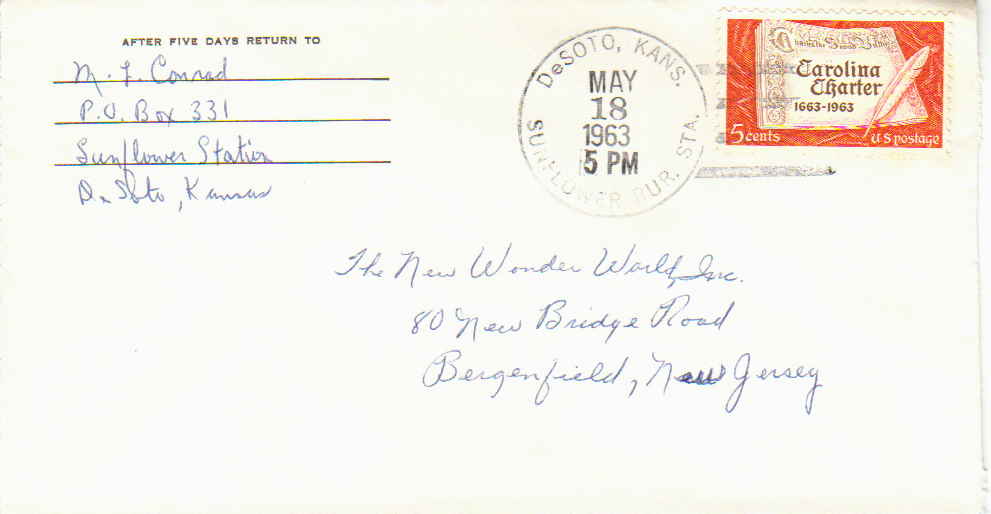 AFTER FIVE DAYS RETURN TO
M. L. Conrad
P.O. Box 331
Sunflower Station
De Soto, Kansas
DeSOTO, KANS.
MAY
18
1963
5 PM
SUNFLOWER RUR. STA.
Carolina
Charter
1663-1963
5 cents
US postage
The New Wonder World, Inc.
80 New Bridge Road
Bergenfield, New Jersey